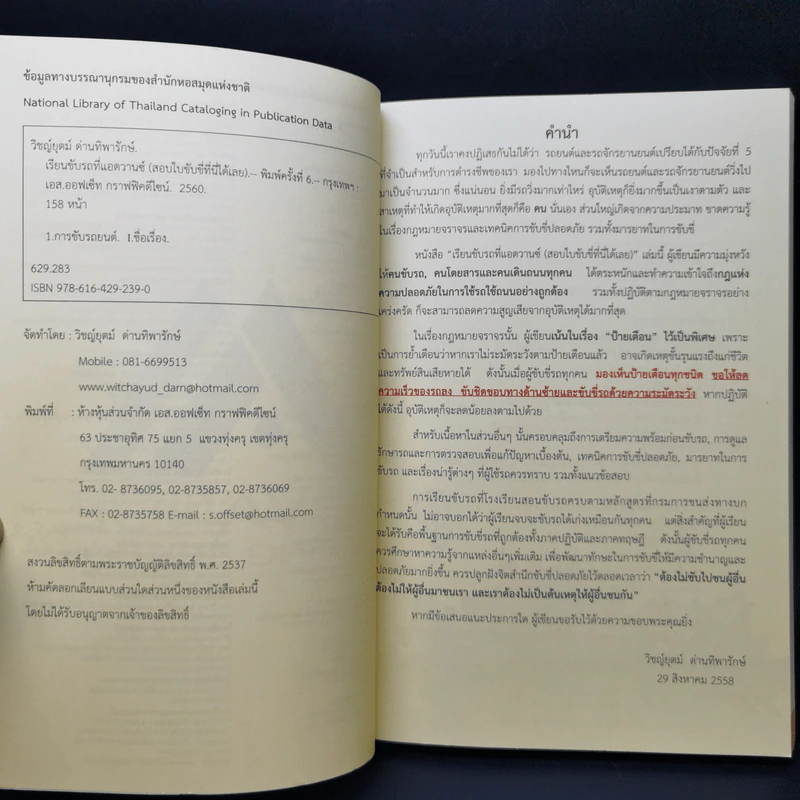 ข้อมูลทางบรรณานุกรมของสำนักหอสมุดแห่งชาติ
National Library of Thailand Cataloging in Publication Data
วิชญ์ยุตม์ ด่านทิพารักษ์.
เรียนขับรถที่แอดวานซ์ (สอบใบขับขี่ที่นี่ได้เลย).-- พิมพ์ครั้งที่ 6.-- กรุงเทพฯ :
เอส.ออฟเซ็ท กราฟฟิคดีไซน์. 2560.
158 หน้า
1.การขับรถยนต์. I.ชื่อเรื่อง.
629.283
ISBN 978-616-429-239-0
จัดทำโดย : วิชญ์ยุตม์ ด่านทิพารักษ์
Mobile : 081-6699513
www.witchayud_darn@hotmail.com
พิมพ์ที่ : ห้างหุ้นส่วนจำกัด เอส.ออฟเซ็ท กราฟฟิคดีไซน์
63 ประชาอุทิศ 75 แยก 5 แขวงทุ่งครุ เขตทุ่งครุ
กรุงเทพมหานคร 10140
โทร. 02-8736095, 02-8735857, 02-8736069
FAX : 02-8735758 E-mail : s.offset@hotmail.com
สงวนลิขสิทธิ์ตามพระราชบัญญัติลิขสิทธิ์ พ.ศ. 2537
ห้ามคัดลอกเลียนแบบส่วนใดส่วนหนึ่งของหนังสือเล่มนี้
โดยไม่ได้รับอนุญาตจากเจ้าของลิขสิทธิ์
คำนำ
ทุกวันนี้เราคงปฏิเสธกันไม่ได้ว่า รถยนต์และรถจักรยานยนต์เปรียบได้กับปัจจัยที่ 5
ที่จำเป็นสำหรับการดำรงชีพของเรา มองไปทางไหนก็จะเห็นรถยนต์และรถจักรยานยนต์วิ่งไป
มาเป็นจำนวนมาก ซึ่งแน่นอน ยิ่งมีรถวิ่งมากเท่าไหร่ อุบัติเหตุก็ยิ่งมากขึ้นเป็นเงาตามตัว และ
สาเหตุที่ทำให้เกิดอุบัติเหตุมากที่สุดก็คือ คน นั่นเอง ส่วนใหญ่เกิดจากความประมาท ขาดความรู้
ในเรื่องกฎหมายจราจรและเทคนิคการขับขี่ปลอดภัย รวมทั้งมารยาทในการขับขี่
หนังสือ "เรียนขับรถที่แอดวานซ์ (สอบใบขับขี่ที่นี่ได้เลย)" เล่มนี้ ผู้เขียนมีความมุ่งหวัง
ให้คนขับรถ, คนโดยสารและคนเดินถนนทุกคน ได้ตระหนักและทำความเข้าใจถึงกฎแห่ง
ความปลอดภัยในการใช้รถใช้ถนนอย่างถูกต้อง รวมทั้งปฏิบัติตามกฎหมายจราจรอย่าง
เคร่งครัด ก็จะสามารถลดความสูญเสียจากอุบัติเหตุได้มากที่สุด
ในเรื่องกฎหมายจราจรนั้น ผู้เขียนเน้นในเรื่อง "ป้ายเตือน" ไว้เป็นพิเศษ เพราะ
เป็นการย้ำเตือนว่าหากเราไม่ระมัดระวังตามป้ายเตือนแล้ว อาจเกิดเหตุขั้นรุนแรงถึงแก่ชีวิต
และทรัพย์สินเสียหายได้ ดังนั้นเมื่อผู้ขับขี่รถทุกคน มองเห็นป้ายเตือนทุกชนิด ขอให้ลด
ความเร็วของรถลง ขับชิดขอบทางด้านซ้ายและขับขี่รถด้วยความระมัดระวัง หากปฏิบัติ
ได้ดังนี้ อุบัติเหตุก็จะลดน้อยลงตามไปด้วย
สำหรับเนื้อหาในส่วนอื่นๆ นั้นครอบคลุมถึงการเตรียมความพร้อมก่อนขับรถ, การดูแล
รักษารถและการตรวจสอบเพื่อแก้ปัญหาเบื้องต้น, เทคนิคการขับขี่ปลอดภัย, มารยาทในการ
ขับรถ และเรื่องน่ารู้ต่างๆ ที่ผู้ใช้รถควรทราบ รวมทั้งแนวข้อสอบ
การเรียนขับรถที่โรงเรียนสอนขับรถครบตามหลักสูตรที่กรมการขนส่งทางบก
กำหนดนั้น ไม่อาจบอกได้ว่าผู้เรียนจบจะขับรถได้เก่งเหมือนกันทุกคน แต่สิ่งสำคัญที่ผู้เรียน
จะได้รับคือพื้นฐานการขับขี่รถที่ถูกต้องทั้งภาคปฏิบัติและภาคทฤษฎี ดังนั้นผู้ขับขี่รถทุกคน
ควรศึกษาหาความรู้จากแหล่งอื่นๆเพิ่มเติม เพื่อพัฒนาทักษะในการขับขี่ให้มีความชำนาญและ
ปลอดภัยมากยิ่งขึ้น ควรปลูกฝังจิตสำนึกขับขี่ปลอดภัยไว้ตลอดเวลาว่า "ต้องไม่ขับไปชนผู้อื่น
ต้องไม่ให้ผู้อื่นมาชนเรา และเราต้องไม่เป็นต้นเหตุให้ผู้อื่นชนกัน"
หากมีข้อเสนอแนะประการใด ผู้เขียนขอรับไว้ด้วยความขอบพระคุณยิ่ง
วิชญ์ยุตม์ ด่านทิพารักษ์
29 สิงหาคม 2558